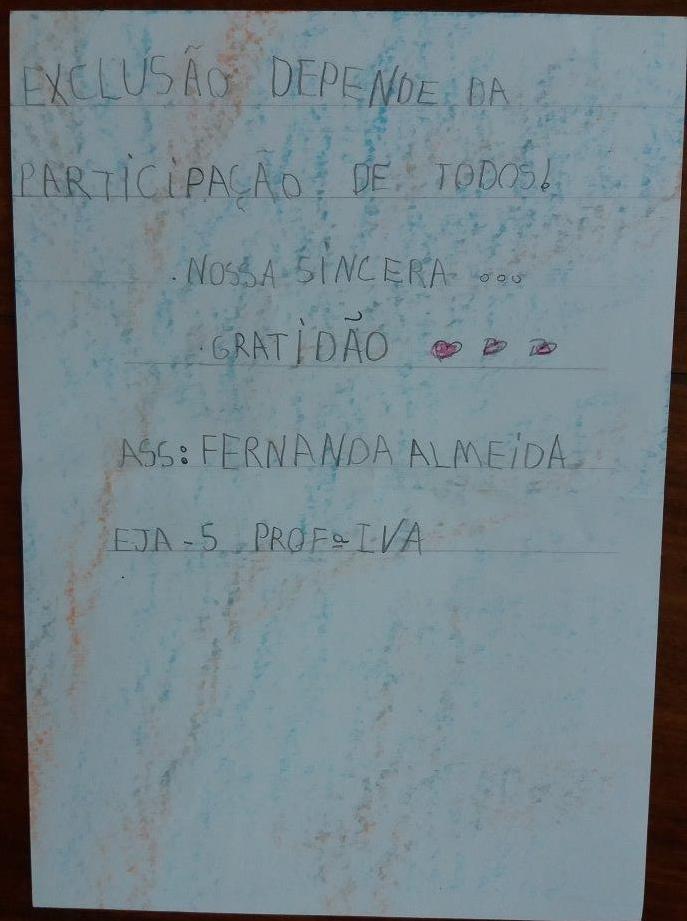 EXCLUSÃO DEPENDE DA
PARTICIPAÇÃO DE TODOS!
.NOSSA SINCERA ...
.GRATIDÃO
ASS: FERNANDA ALMEIDA
EJA-5 PROFª IVA